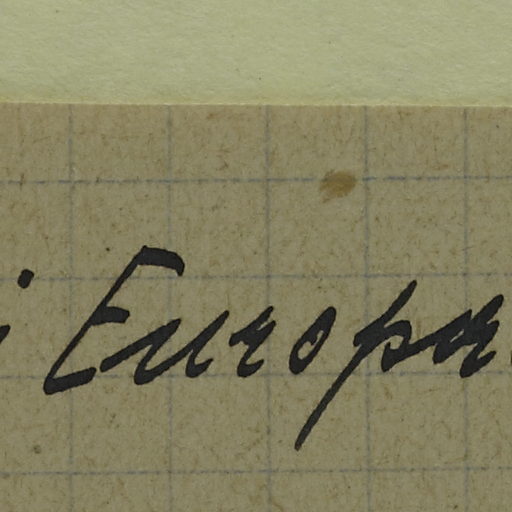 i Europa